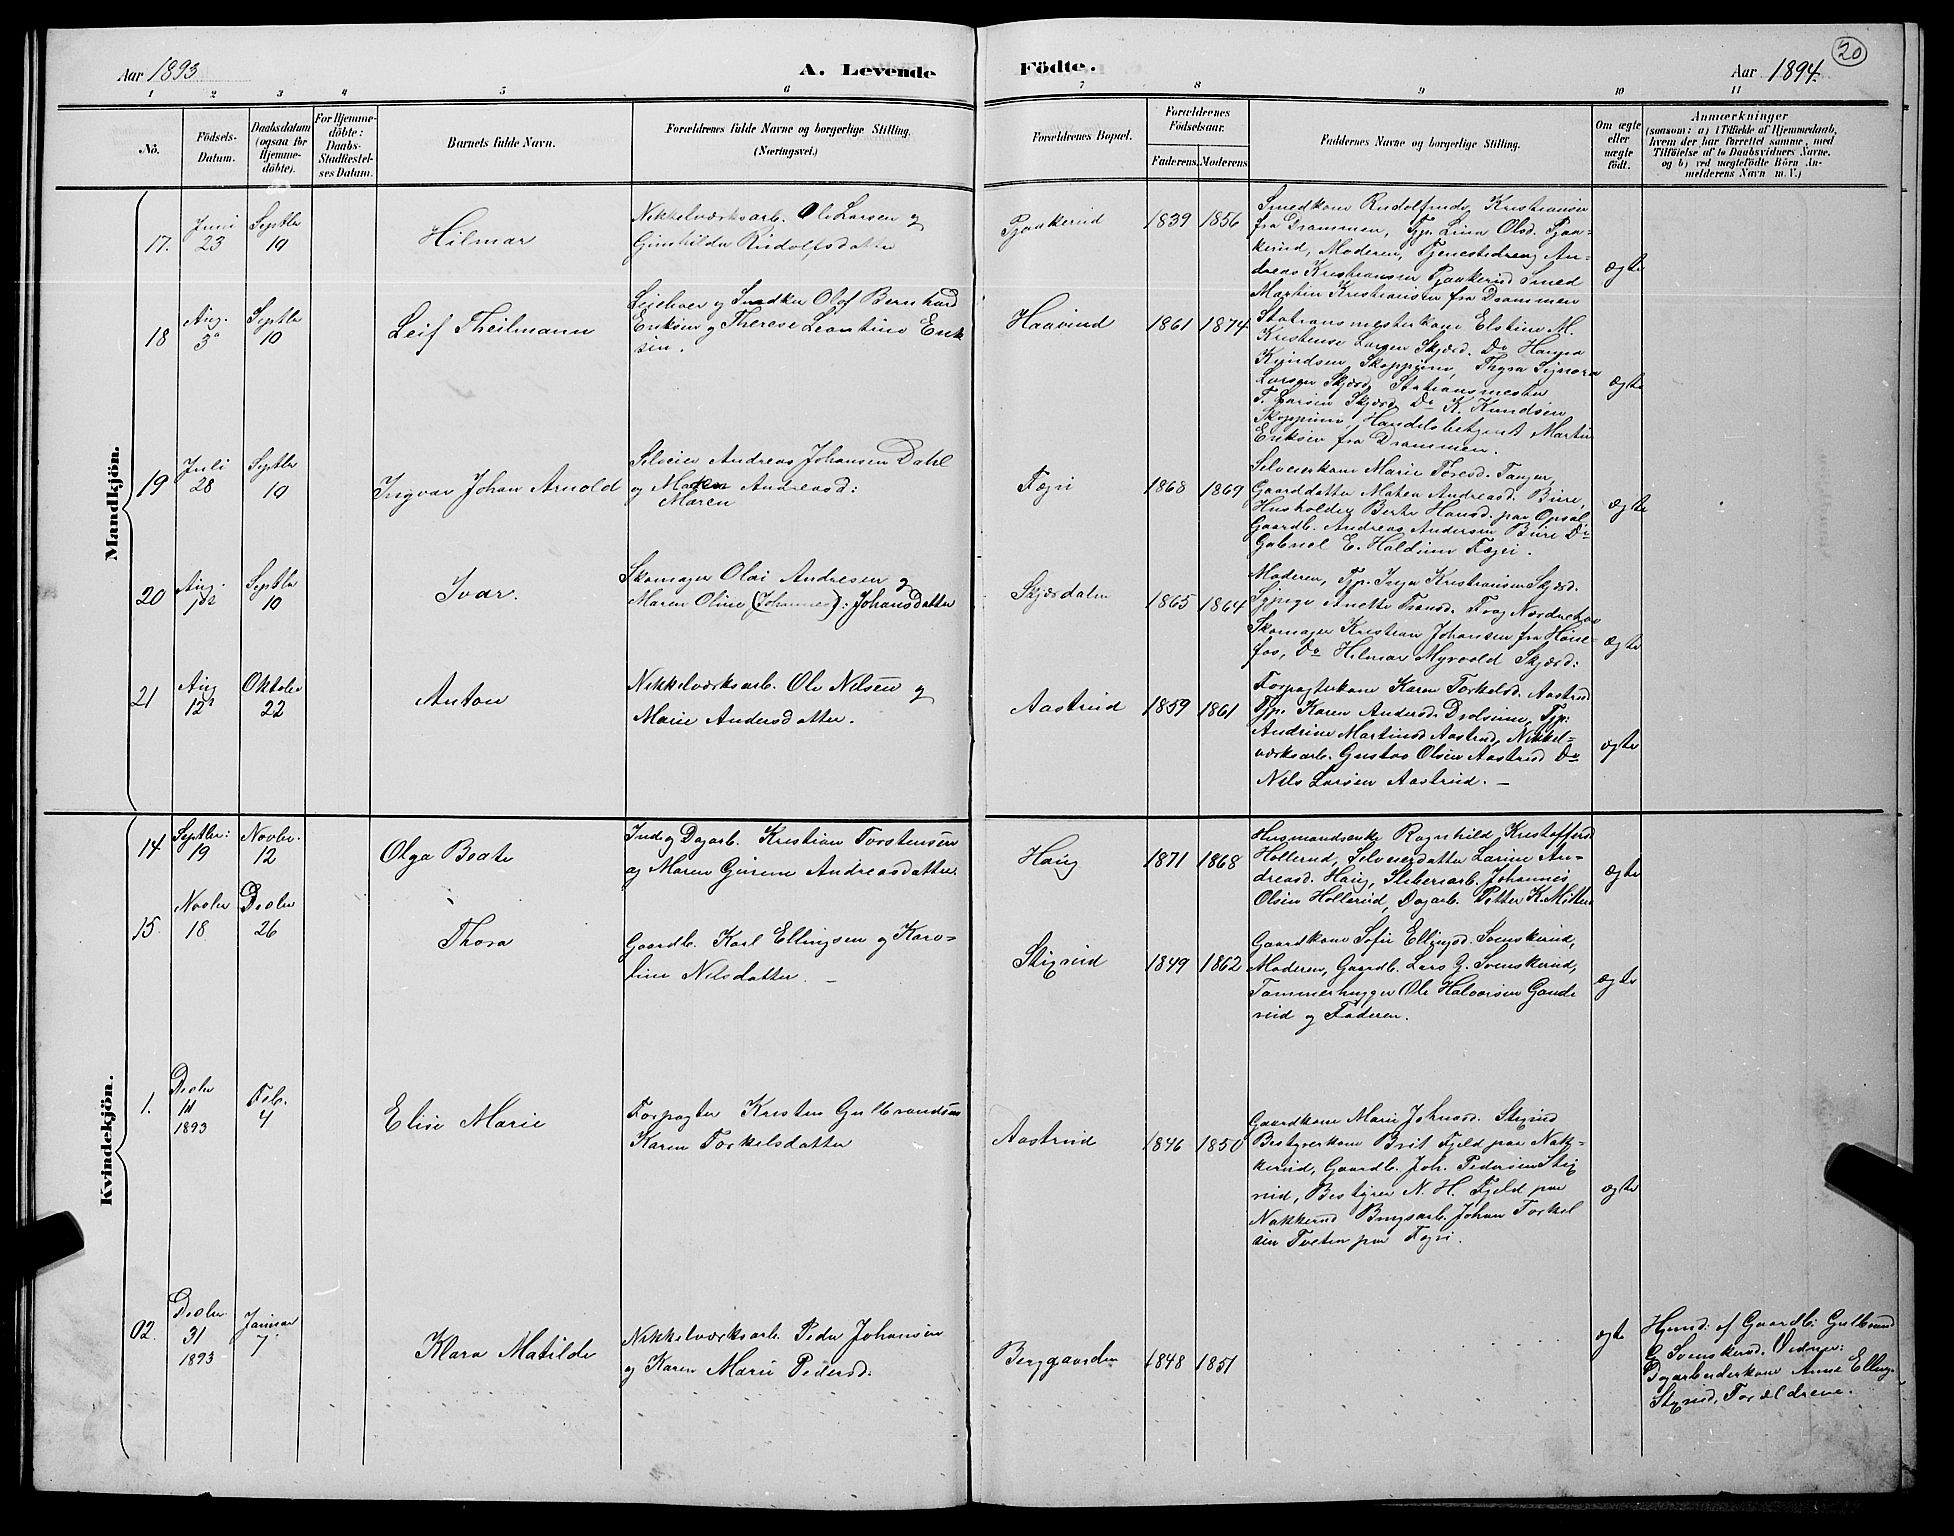 20
Aar 1893
A. Levende Födte.
Aar 1894.
1 2 3 4 5 6 7 8 9 10 11
Nô.
Födsels-
Datum.
Daabsdatum
(ogsaa for
Hjemme-
döbte).
For Hjemme-
döbte:
Daabs-
Stadfæstel-
ses Datum.
Barnets fulde Navn.
Forældrenes fulde Navne og borgerlige Stilling.
(Næringsvei.)
Forældrenes Bopæl.
Forældrenes
Födselsaar.
Faderens. Moderens.
Faddernes Navne og borgerlige Stilling.
Om ægte
eller
uægte
födt.
Anmærkninger
(saasom: a) i Tilfælde af Hjemmedaab,
hvem der har forrettet samme, med
Tilföielse af to Daabsvidners Navne.
og b) ved uægtefödte Börn An-
melderens Navn m. V.)
Mandkjön.
17.
Juni
23
Septbr
10
Hilmar
Nikkelværksarb. Ole Larsen og
Gunhilde Rudolfsdatter
Pjaakerud
1839 1856
Smedkone Rudolfine Kristiansen
fra Drammen, Tjp. Lina Olsd. Pjaa-
kerud, Moderen, Tjenestedreng An-
dreas Kristiansen Pjaakerud Smed
Martin Kristiansen fra Drammen
ægte
18
Aug.
3
Septbr
10
Leif Theilmann
Leielever og Snedker Olof Bernhard
Eriksen og Therese Leontine Erik
sen.
Haavind
1861 1874
Stationsmesterkone Elstine M.
Kristense Larsen Skjærd. Do Hanna
Knudsen Skoppum, Thyra Signora
Larsen Skjærd, Stationsmester
T. Larsen Skjærd Do K. Knudsen
Skoppum, Handelsbetjent Martin
Eriksen fra Drammen.
ægte
19
Juli
28
Septbr
10
Ingvar Johan Arnold
Selveier Andreas Johansen Dahl
og Andreasd:
Maren
Fægri
1868 1869
Selveierkone Marie Toresd. Tanger,
Gaarddatter Maten Andreasd. Bure,
Husholder Berte Hansd. paa Opsal
Gaardb. Andreas Andersen Bure Do
Gabriel E. Haldum Fægri.
ægte
20
Aug.
1
Septbr
10
Ivar.
Skomager Olai Andresen og
Maren Oline (Johannes): Johansdatter
Skjærdalen
1865 1864
Moderen, Tjp. Inga Kristiansen Skjærd.
Sypige Anette Fransd. Frog Norderhov
Skomager Kristian Johansen fra Høne-
fos, Do Hilmar Myrvold Skjærd:
ægte
21
Aug
12
Oktober
22
Anton
Nikkelværksarb. Ole Nilsen og
Marie Andersdatter.
Aastrud
1859 1861
Forpagterkone Karen Torkelsd. Aastrud
Tjp. Karen Andersd. Drolsum, Tjp:
Andrine Martinsd Aastrud, Nikkel-
værksarb. Gustav Olsen Aastrud Do
Nils Larsen Aastrud. —
ægte
Kvindekjön.
14
Septbr:
19
Novbr.
12
Olga Beate
Inde og Dagarb. Kristian Torstensen
og Maren Gurine Andreasdatter
Haug
1871 1868
Husmandsenke Ragnhild Kristoffersd
Hollerud, Selveierdatter Larine An-
dreasd. Haug, Sliberiarb. Johannes
Olsen Hollerud, Dagarb. Petter K. Mötten
ægte
15
Novbr
18
Decbr
26
Thora
Gaardb. Karl Ellingsen og Karo-
line Nilsdatter. —
Stixrud
1849 1862
Gaardkone Sofie Ellingsd. Svenskerud,
Moderen, Gaardb. Lars G. Svenskerud,
Tømmerhugger Ole Halvorsen Gunde
rud og Faderen.
ægte
1.
Decbr
11
1893
Feb.
4
Elise Marie
Forpagter Kristen Gulbrandsen
Karen Torkelsdatter
Aastrud
1846 1850
Gaardkone Marie Johnsd. Stixrud
Bestyrerkone Brit Fjeld paa Nak-
kerud, Gaardb. Joh. Pedersen Stix
rud, Bestyrer N. H. Fjeld paa
Nakkerud Brugsarb. Johan Torkel
sen Tveten paa Fægri.
ægte
02.
Decbr
31
1893
Januar
7
Klara Matilde
Nikkelværksarb. Peder Johansen
og Karen Marie Pedersd.
Berggaarden
1848 1851
ægte
Hjemd: af Gaardb: Gulbrand
G. Svenskerud. Vidner:
Dagarbeiderkone Anne Elling
Stixrud, Forældrene.